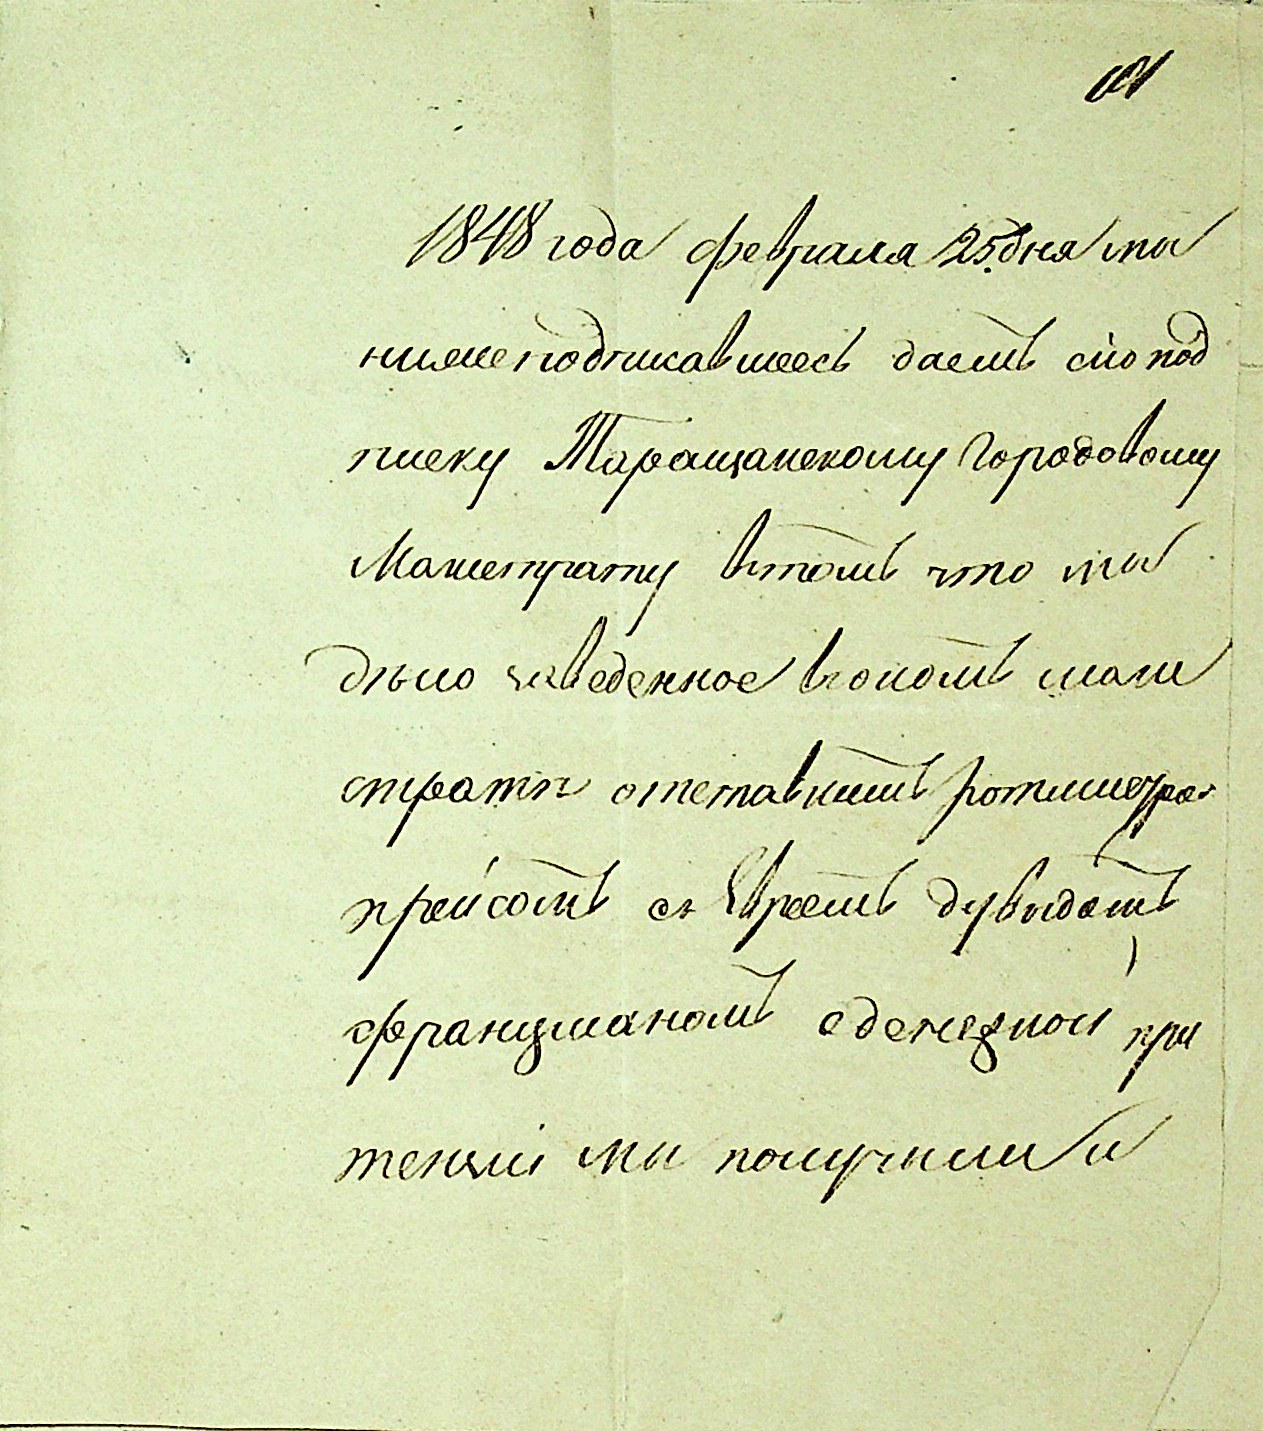 101
1848 года февраля 25. дня мы
нижеподписавшеесь даемъ сію под
писку Таращанскому Городовому
Магистрату втомъ что мы
дѣло заведенное вономъ маги
стратѣ отставнимъ ротмистра
прейсомъ съ Евреемъ дувыдомъ
францманомъ оденежной при
тензіи мы получили и